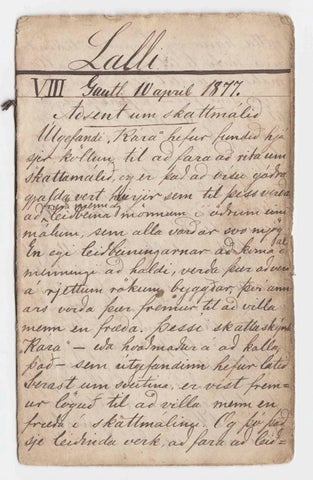 Lalli
VIII Gautl. 10 april 1877.
Aðsent um skattmálið
Útgefandi "Kára" hefur fundið hjá
sér köllun til að fara að rita um
skattamálið, og er það að vísu
vert hverjir sem til þess verða
að leiðbeina mönnum í öðrum eins
málum, sem alla varðar svo mjög.
En eigi leiðbeiningarnar að koma að
að haldi, verða þær að vera
á rjettum rökum byggðar, þær ann
ars verða þær fremur til að villa
menn en fræða. Þessi skattaskýrsla
"Kára" – eða hvað maður á að kalla
það – sem útgefandinn hefur látið
berast um sveitina, er víst frem-
ur löguð til að villa menn en
fræða í skattmálinu. Og þó það
sje leiðinda verk, að fara að leið=